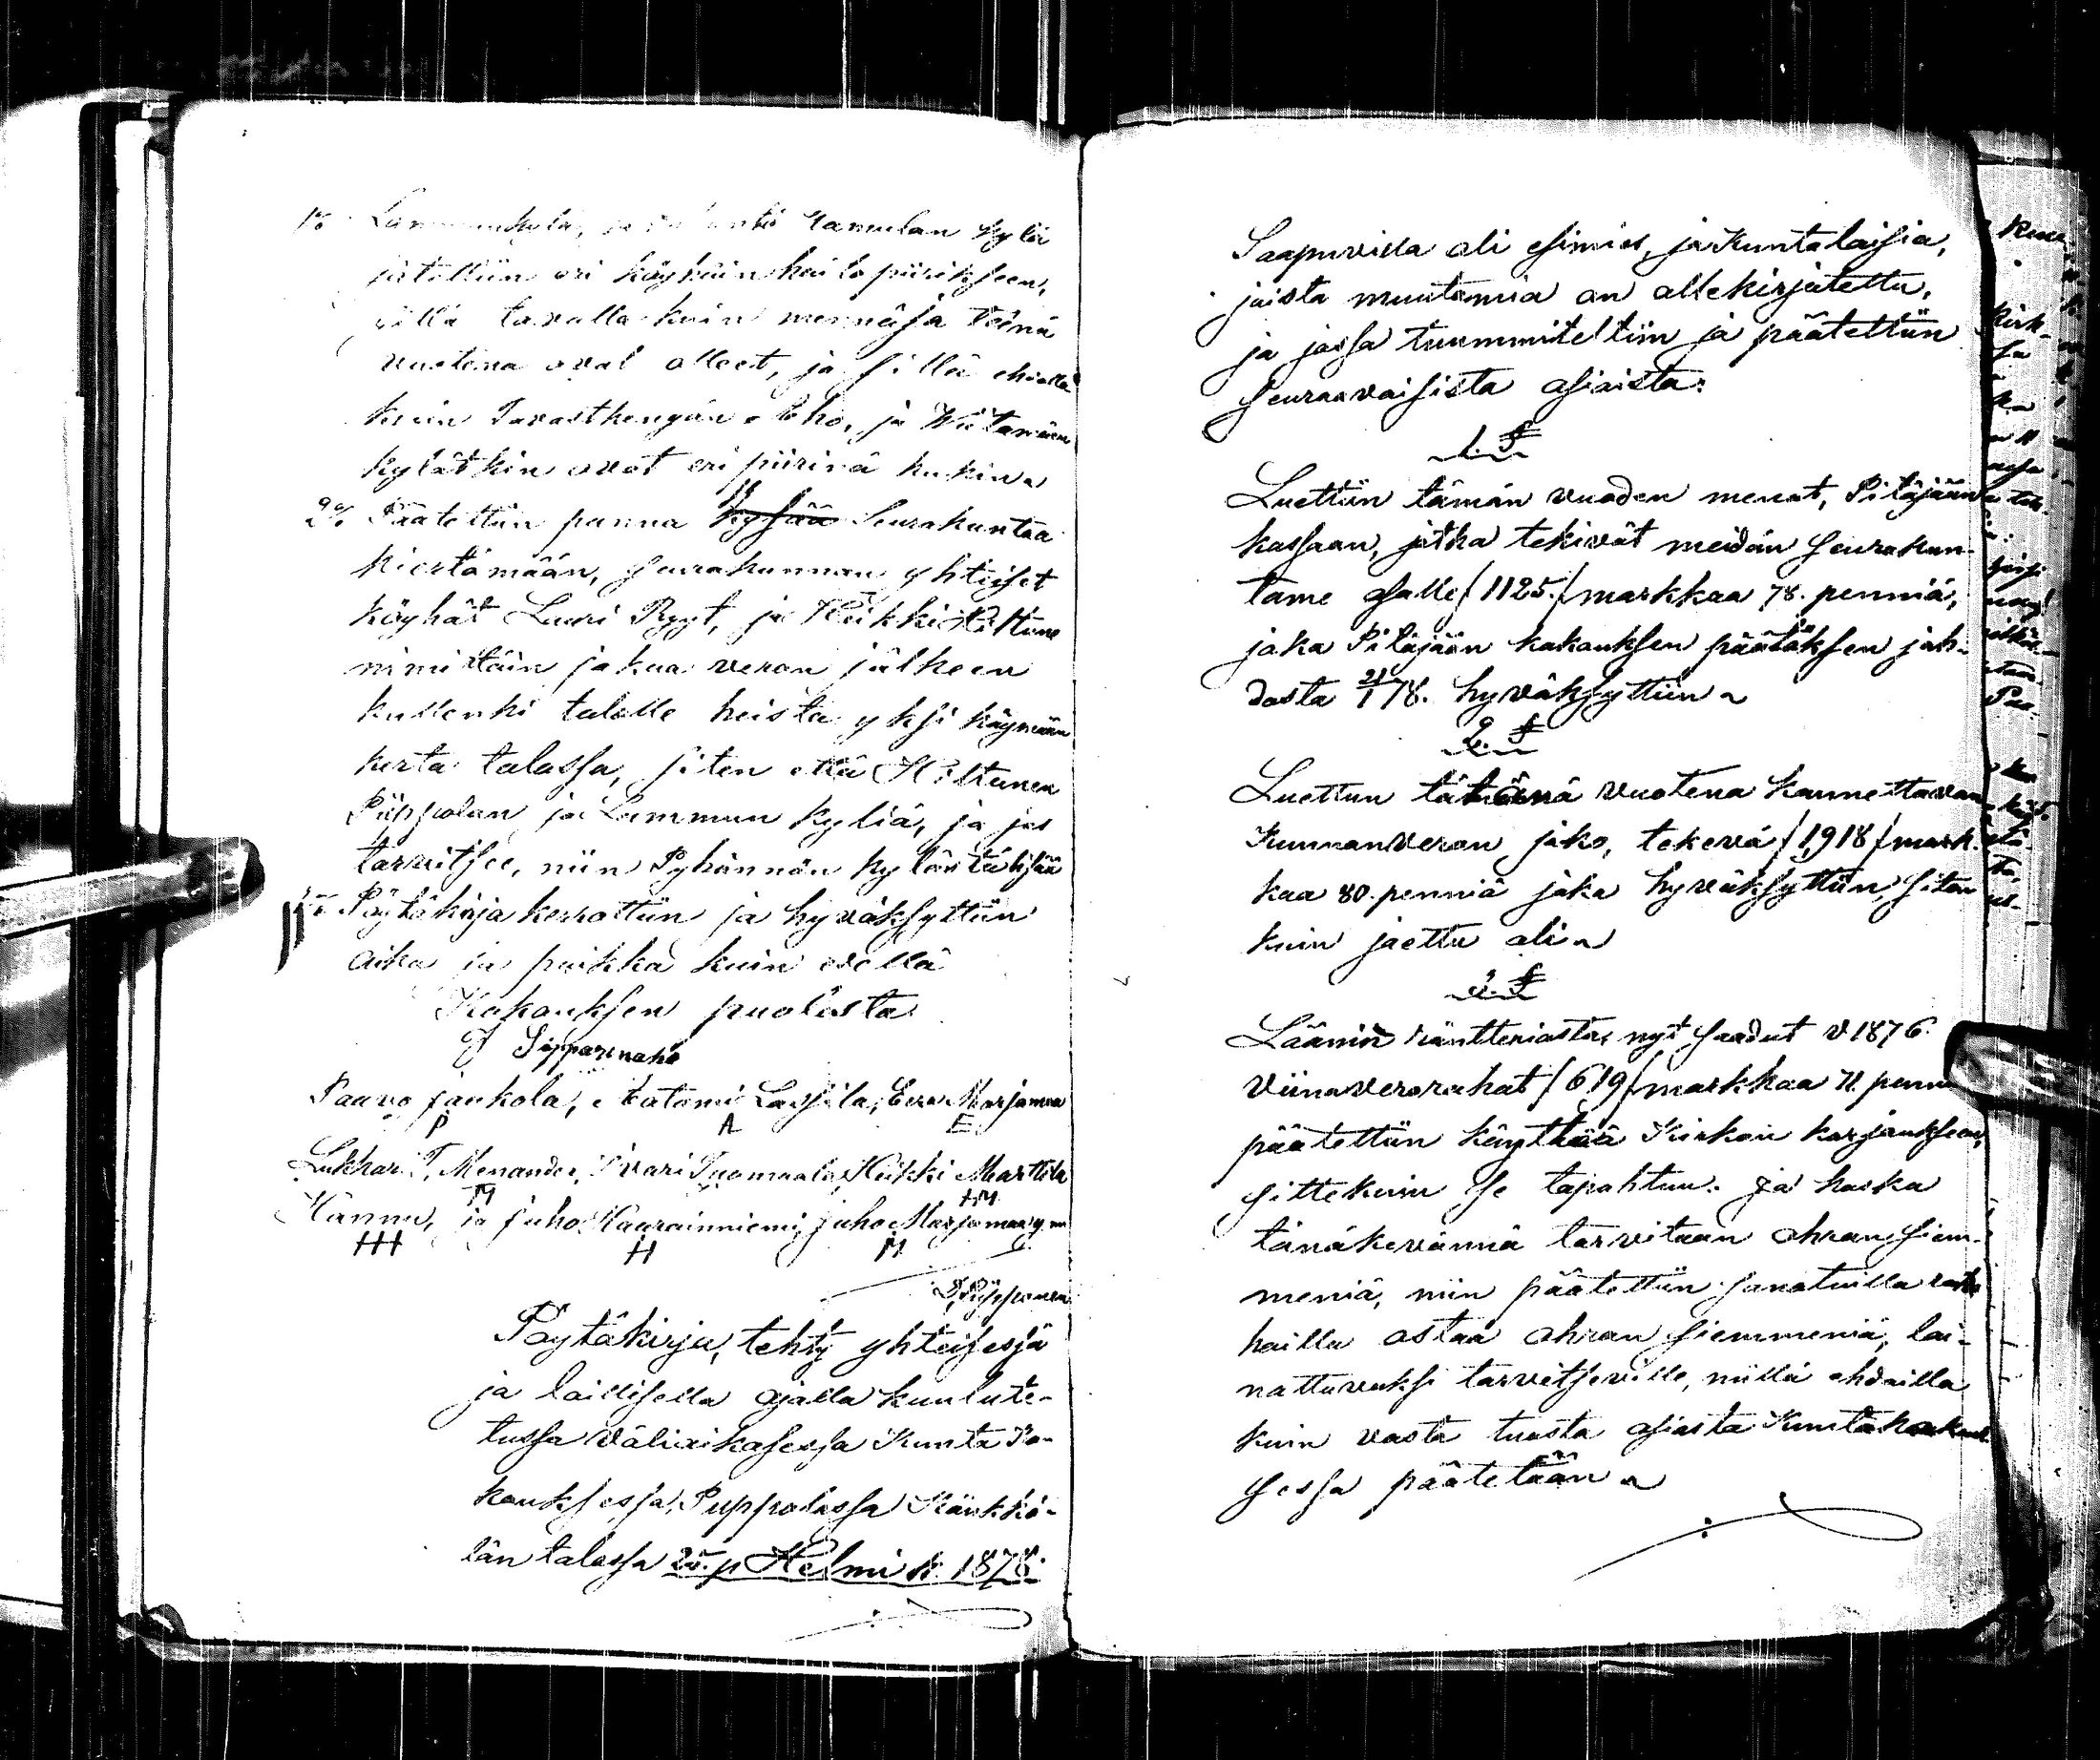 1o kylä
jätettiin eri köyhäin hoitopiirikseen,
sillä tavalla kuin mennäsä
vuotena ovat olleet, ja sillä ehdolla
kuin Tavastkengän Aho, ja
kylätkin ovat eri piirinä
2o Päätettiin panna kysyää Seurakuntaa
kiertämään, seurakunnan yhteiset
köyhät Lauri Pyyt, ja Heikki Hiltune
nimittäin jakaa veron jälkeen
kullenki talolle heistä yksi käymään
kerta talossa, siten että Hiltunen
Piippolan ja Lammun kyliä, ja jos
tarvitsee, niin Pyhännän kylän
Pöytäkirja kerrottiin ja hyväksyttiin
aika ja paikka kuin evellä
Kokouksen puolesta
Paavo jaukola, Aatami Lassila, Eero Marjamaa
P A E
Lukkari T. Menander, Iivari Tuomaala, Heikki Marttila
M HM
Hannu, ja juho Haurainniemi, juho Marjamaa
HH H M
Pöytäkirja, tehty yhteisesjä
ja laillisella ajalla kuulute-
tussa väliaikasessa Kunta Ko-
kouksessa, Piippolassa Känkkö-
län talossa 25. p Helmi k. 1878.
Saapuvilla oli esimies, ja Kuntalaisia,
joista muutamia on allekirjotettu,
ja jossa tuummiteltiin ja päätettiin
seuraavaisista asioista:
1. §
Luettiin tämän vuoden menot, Pitäjään
kassaan, jotka tekivät meidän seurakun-
tame osalle /1125./ markkaa 78. penniä,
joka Pitäjään kokouksen päätöksen joh-
dosta 21/1 78. hyväksyttiin
2. §
Luettiin tähänä vuotena kannettavan
Kunnanveron jako, tekevä /1,918/ mark-
kaa 80. penniä joka hyväksyttiin, siten
kuin jaettu oli
3. §
Läänin räntteriasta, nyt saadut v 1876.
viinaverorahat /619/ markkaa 71. penni
päätettiin käyttää Kirkon korjaukseen,
sittekuin se tapahtuu. ja koska
tänäkevännä tarvitaan ohran siem-
meniä, niin päätettiin sanotuilla
hoilla ostaa ohran siemmeniä, lai-
nattavaksi tarvitseville, niillä ehdoilla
kuin vasta tuosta asiasta Kuntakokouk-
sessa päätetään